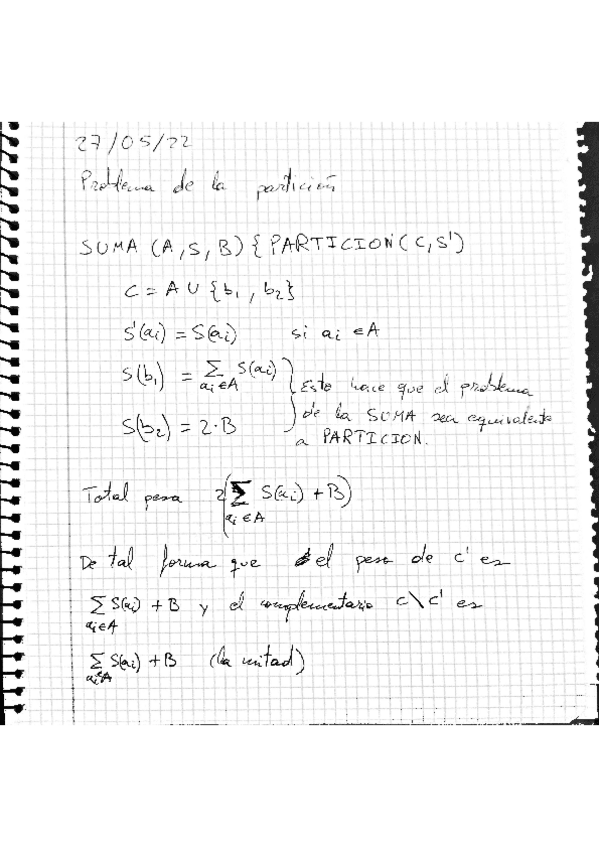 27/05/22
Problema de la partición
SUMA (A, S, B) { PARTICION (C, S')
C = A ∪ {b₁, b₂}
S'(aᵢ) = S(aᵢ) si aᵢ ∈ A
S(b₁) = ∑ S(aᵢ) } Esto hace que el problema
aᵢ ∈ A
S(b₂) = 2·B } de la SUMA sea equivalente
a PARTICION.
Total pesa 2(∑ S(aᵢ) + B)
aᵢ ∈ A
De tal forma que el peso de C' es
∑ S(aᵢ) + B y el complementario C\C' es
aᵢ ∈ A
∑ S(aᵢ) + B (la mitad)
aᵢ ∈ A